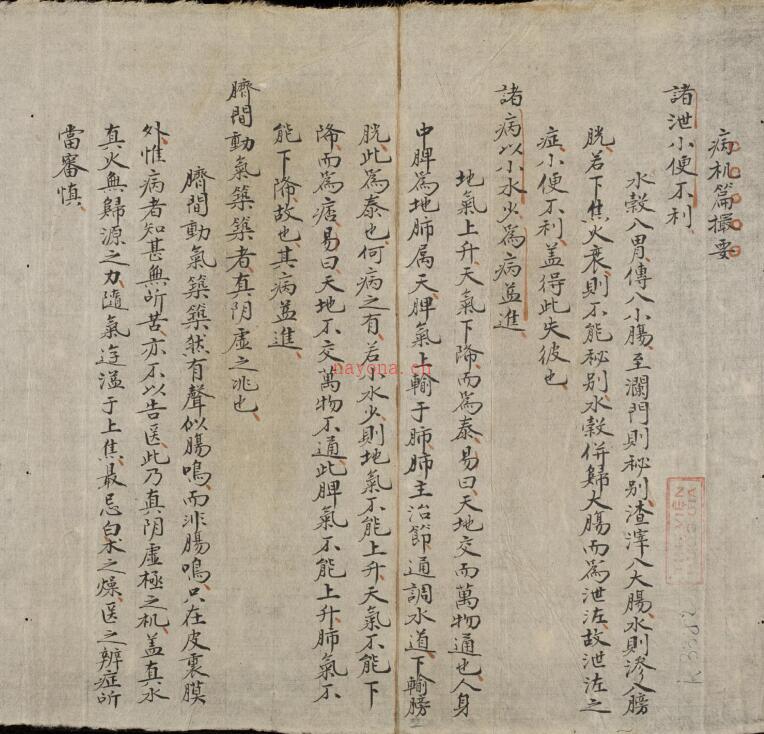 病机篇撮要
諸泄小便不利
水穀入胃傳入小腸至瀾門則秘别渣滓入大腸水則滲入膀
胱若下焦火衰則不能秘别水穀併歸大腸而爲泄泣故泄泣之
症小便不利盖得此失彼也
諸病以小水少爲病益進
地氣上升天氣下降而爲泰易曰天地交而萬物通也人身
中脾爲地肺属天脾氣上輸于肺肺主治節通調水道下輸膀
胱此爲泰也何病之有若小水少則地氣不能上升天氣不能下
降而爲痞易曰天地不交萬物不通此脾氣不能上升肺氣不
能下降故也其病益進
臍間動氣築築者真阴虛之兆也
臍間動氣築築狀有聲似腸鳴而非腸鳴只在皮裏膜
外惟病者知甚無所苦亦不以告医此乃真阴虛極之机盖真水
真火無歸源之力隨氣迸溢于上焦最忌白术之燥医之辨症所
當審慎
nayona.cn